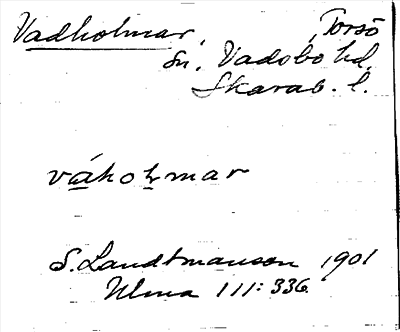 Vadholmar, Torsö
sn, Vadsbo hd,
Skarab. l.
våholmar
S. Landtmanson 1901
Ulma 111:336.